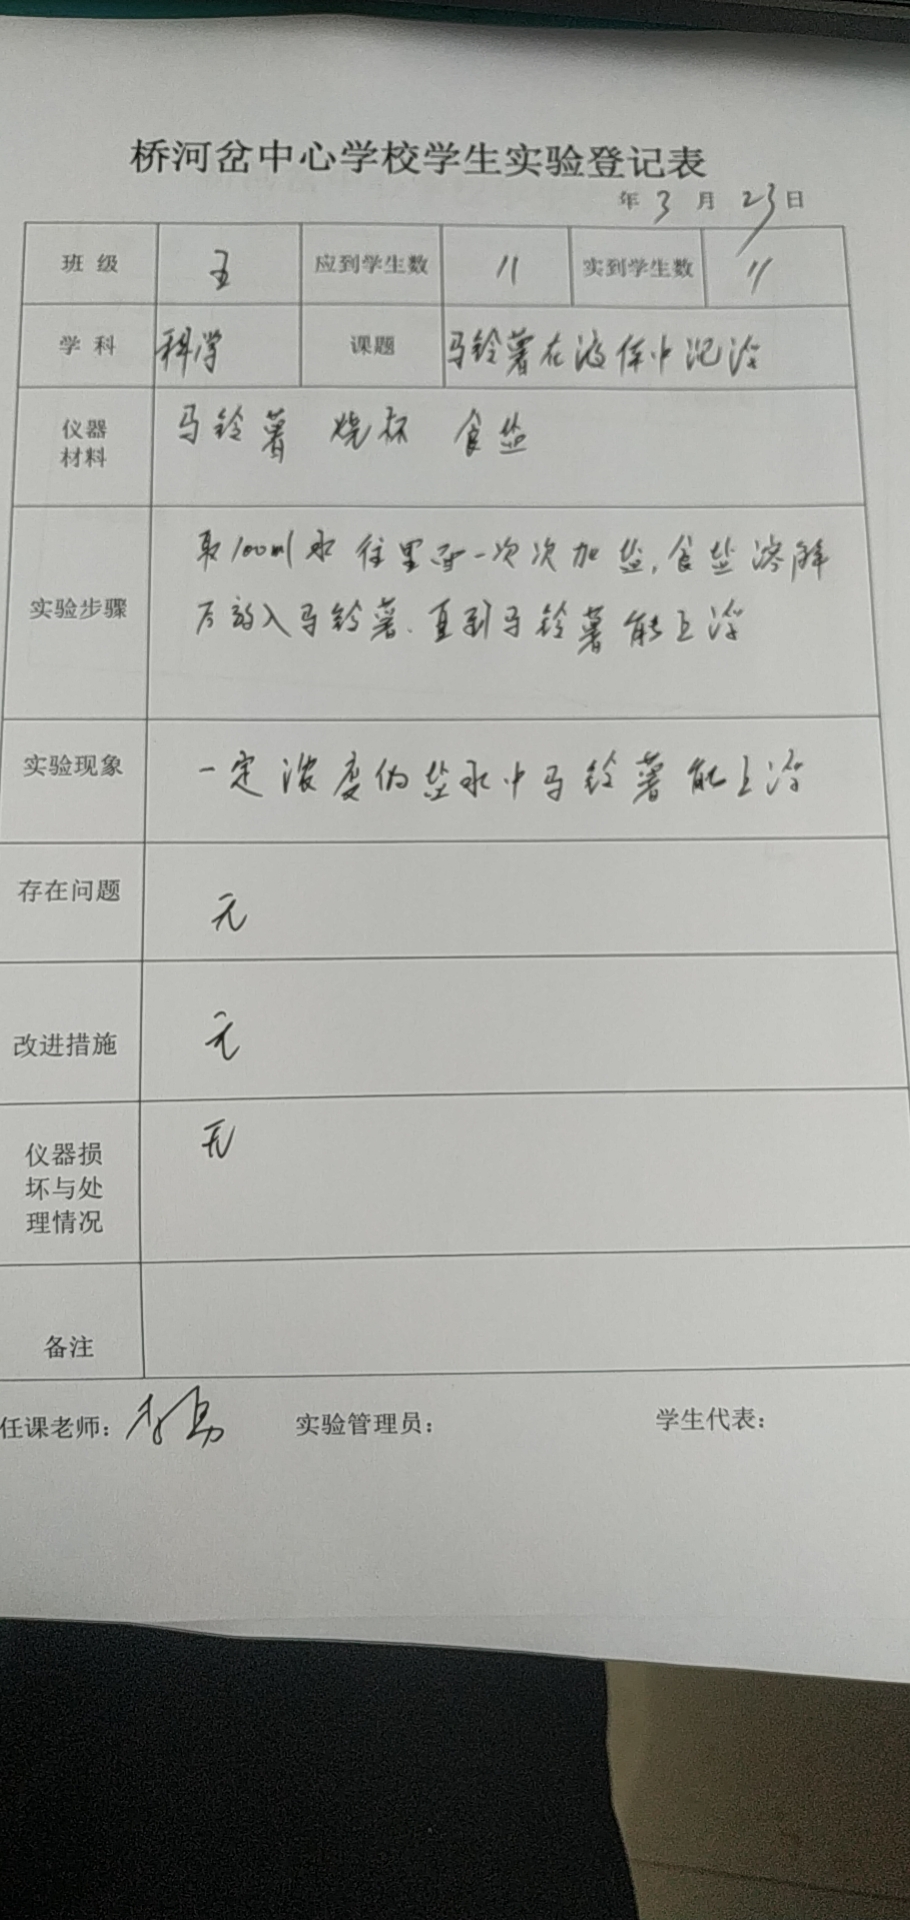 桥河岔中心学校学生实验登记表
年 3 月 23 日
班 级 五 应到学生数 11 实到学生数 11
学 科 科学 课题 马铃薯在液体中沉浮
仪器材料 马铃薯 烧杯 食盐
实验步骤
取100ml水 往里面一次次加盐,食盐溶解
后放入马铃薯.直到马铃薯能上浮
实验现象 一定浓度的盐水中马铃薯能上浮
存在问题 无
改进措施 无
仪器损
坏与处
理情况
无
备注
任课老师: 实验管理员: 学生代表: